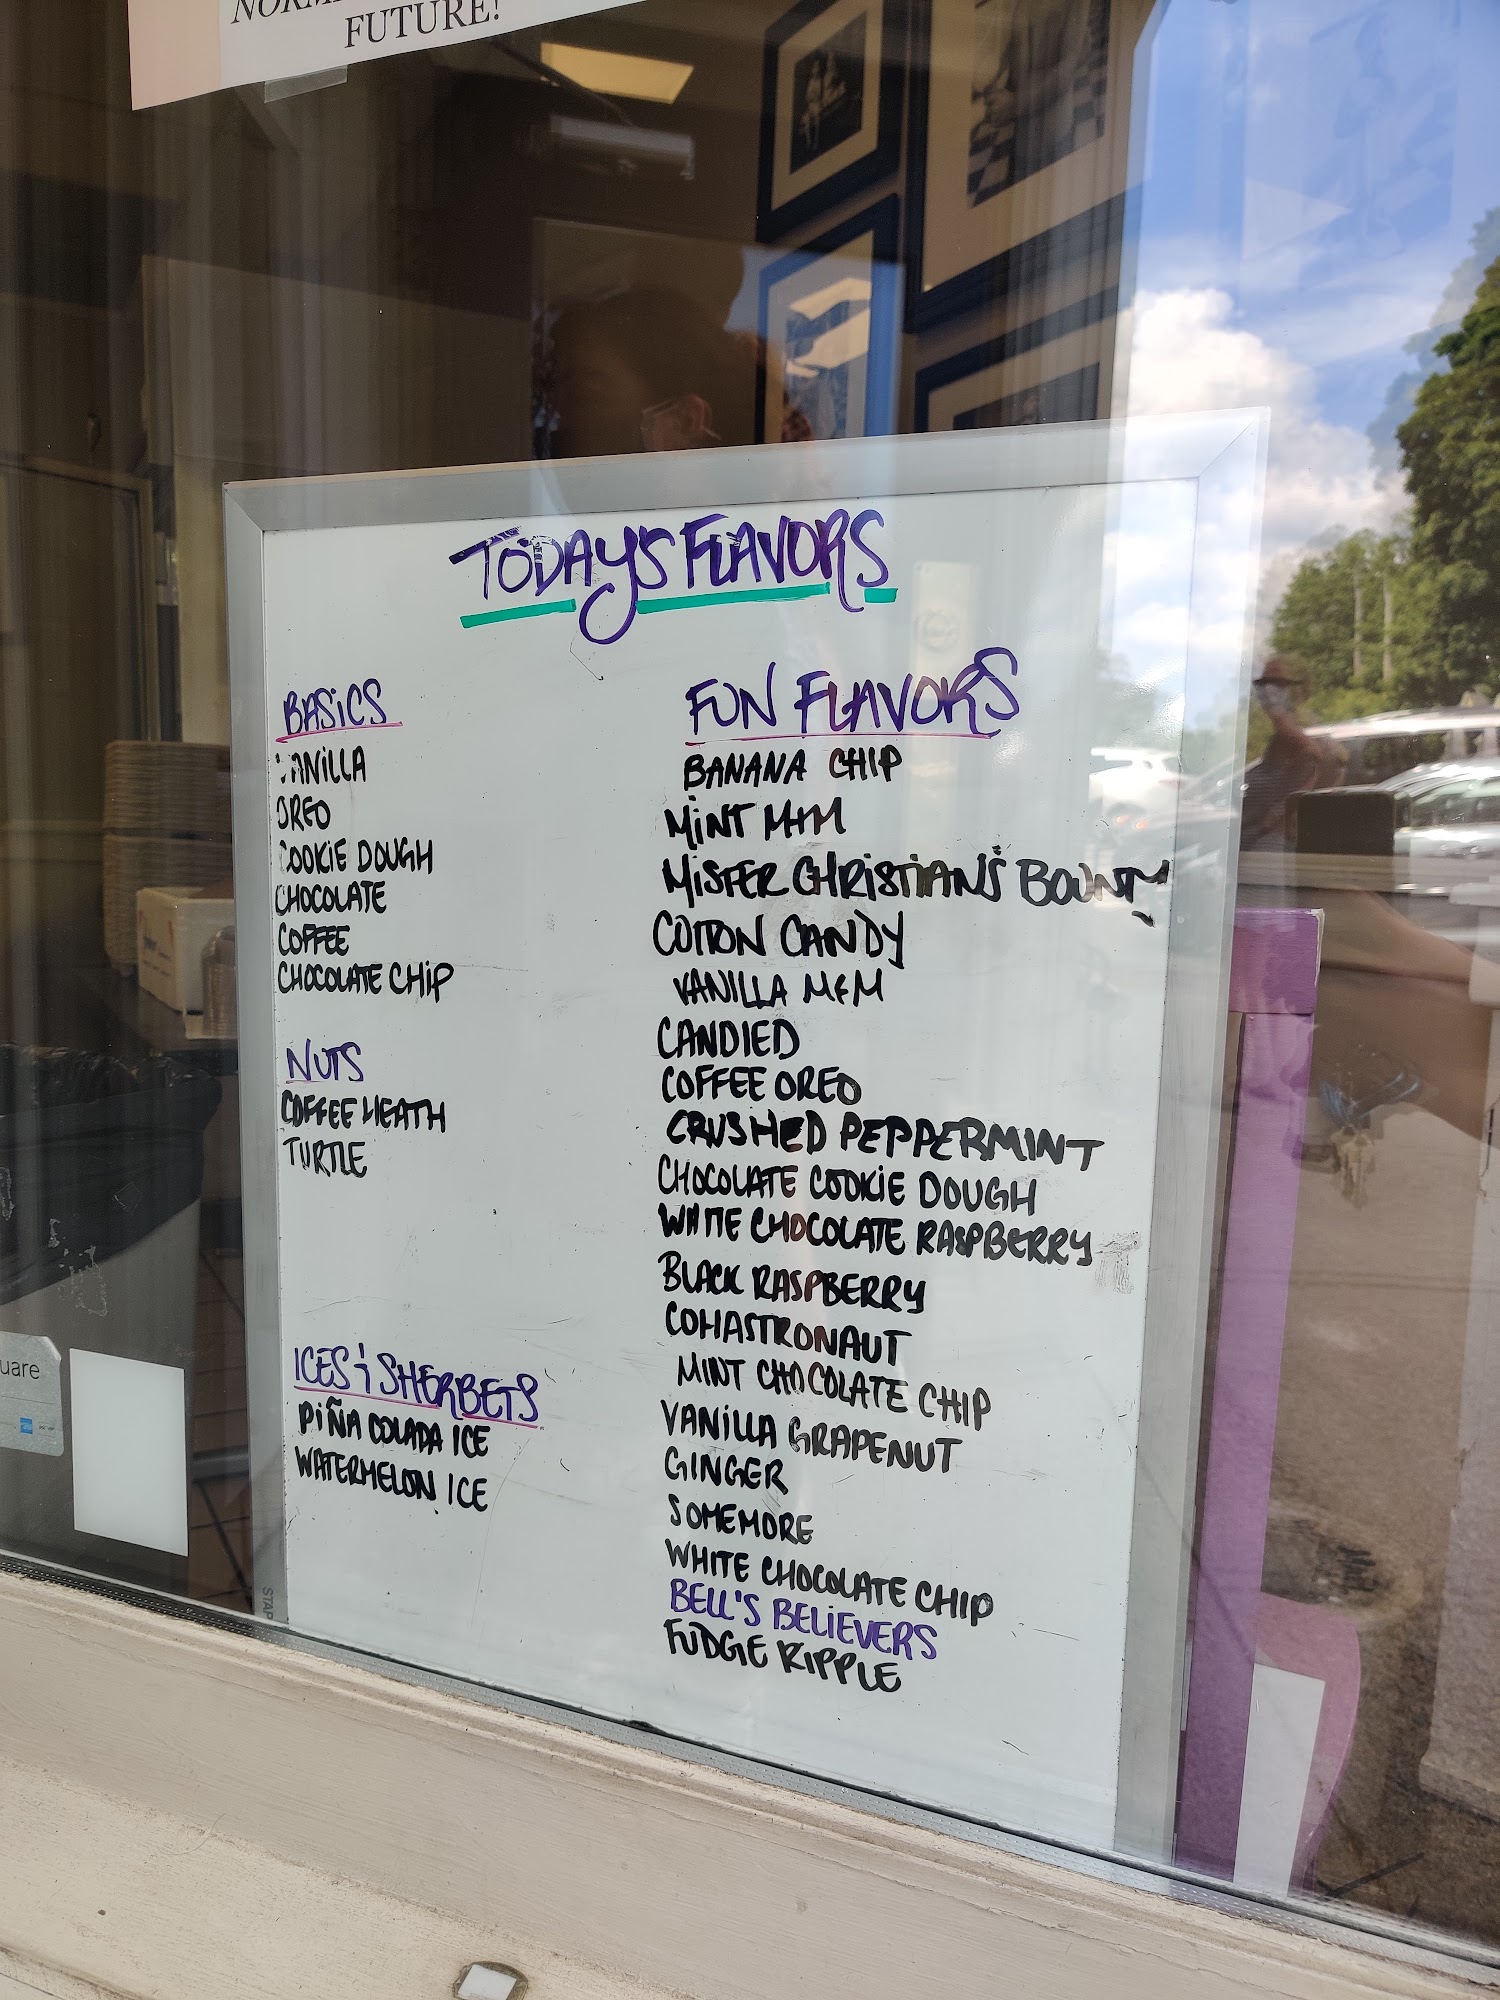 FUTURE!
TODAY'S FLAVORS
BASICS
VANILLA
OREO
COOKIE DOUGH
CHOCOLATE
COFFEE
CHOCOLATE CHIP
NUTS
COFFEE HEATH
TURTLE
ICES & SHERBETS
PIÑA COLADA ICE
WATERMELON ICE
FUN FLAVORS
BANANA CHIP
MINT M+M
MISTER CHRISTIAN'S BOUNTY
COTTON CANDY
VANILLA M+M
CANDIED
COFFEE OREO
CRUSHED PEPPERMINT
CHOCOLATE COOKIE DOUGH
WHITE CHOCOLATE RASPBERRY
BLACK RASPBERRY
COHASTRONAUT
MINT CHOCOLATE CHIP
VANILLA GRAPENUT
GINGER
SOMEMORE
WHITE CHOCOLATE CHIP
BELL'S BELIEVERS
FUDGIE RIPPLE
uare